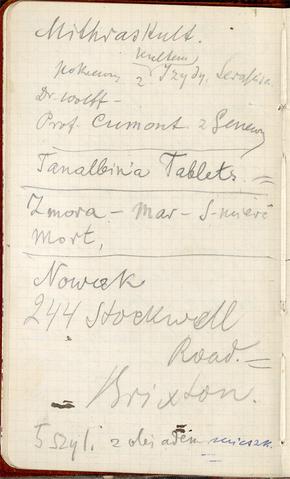 Mithraskult.
kultem
z Izydy, Serapisa
Dr. Wolff -
Prof. Cumont z Genewy
Tanalbinia Tablets. =
Zmora - Mar - Śmierć
Mort,
Nowak
244 Stockwell
Road. =
Brixton.
5 szyl. z obiadem